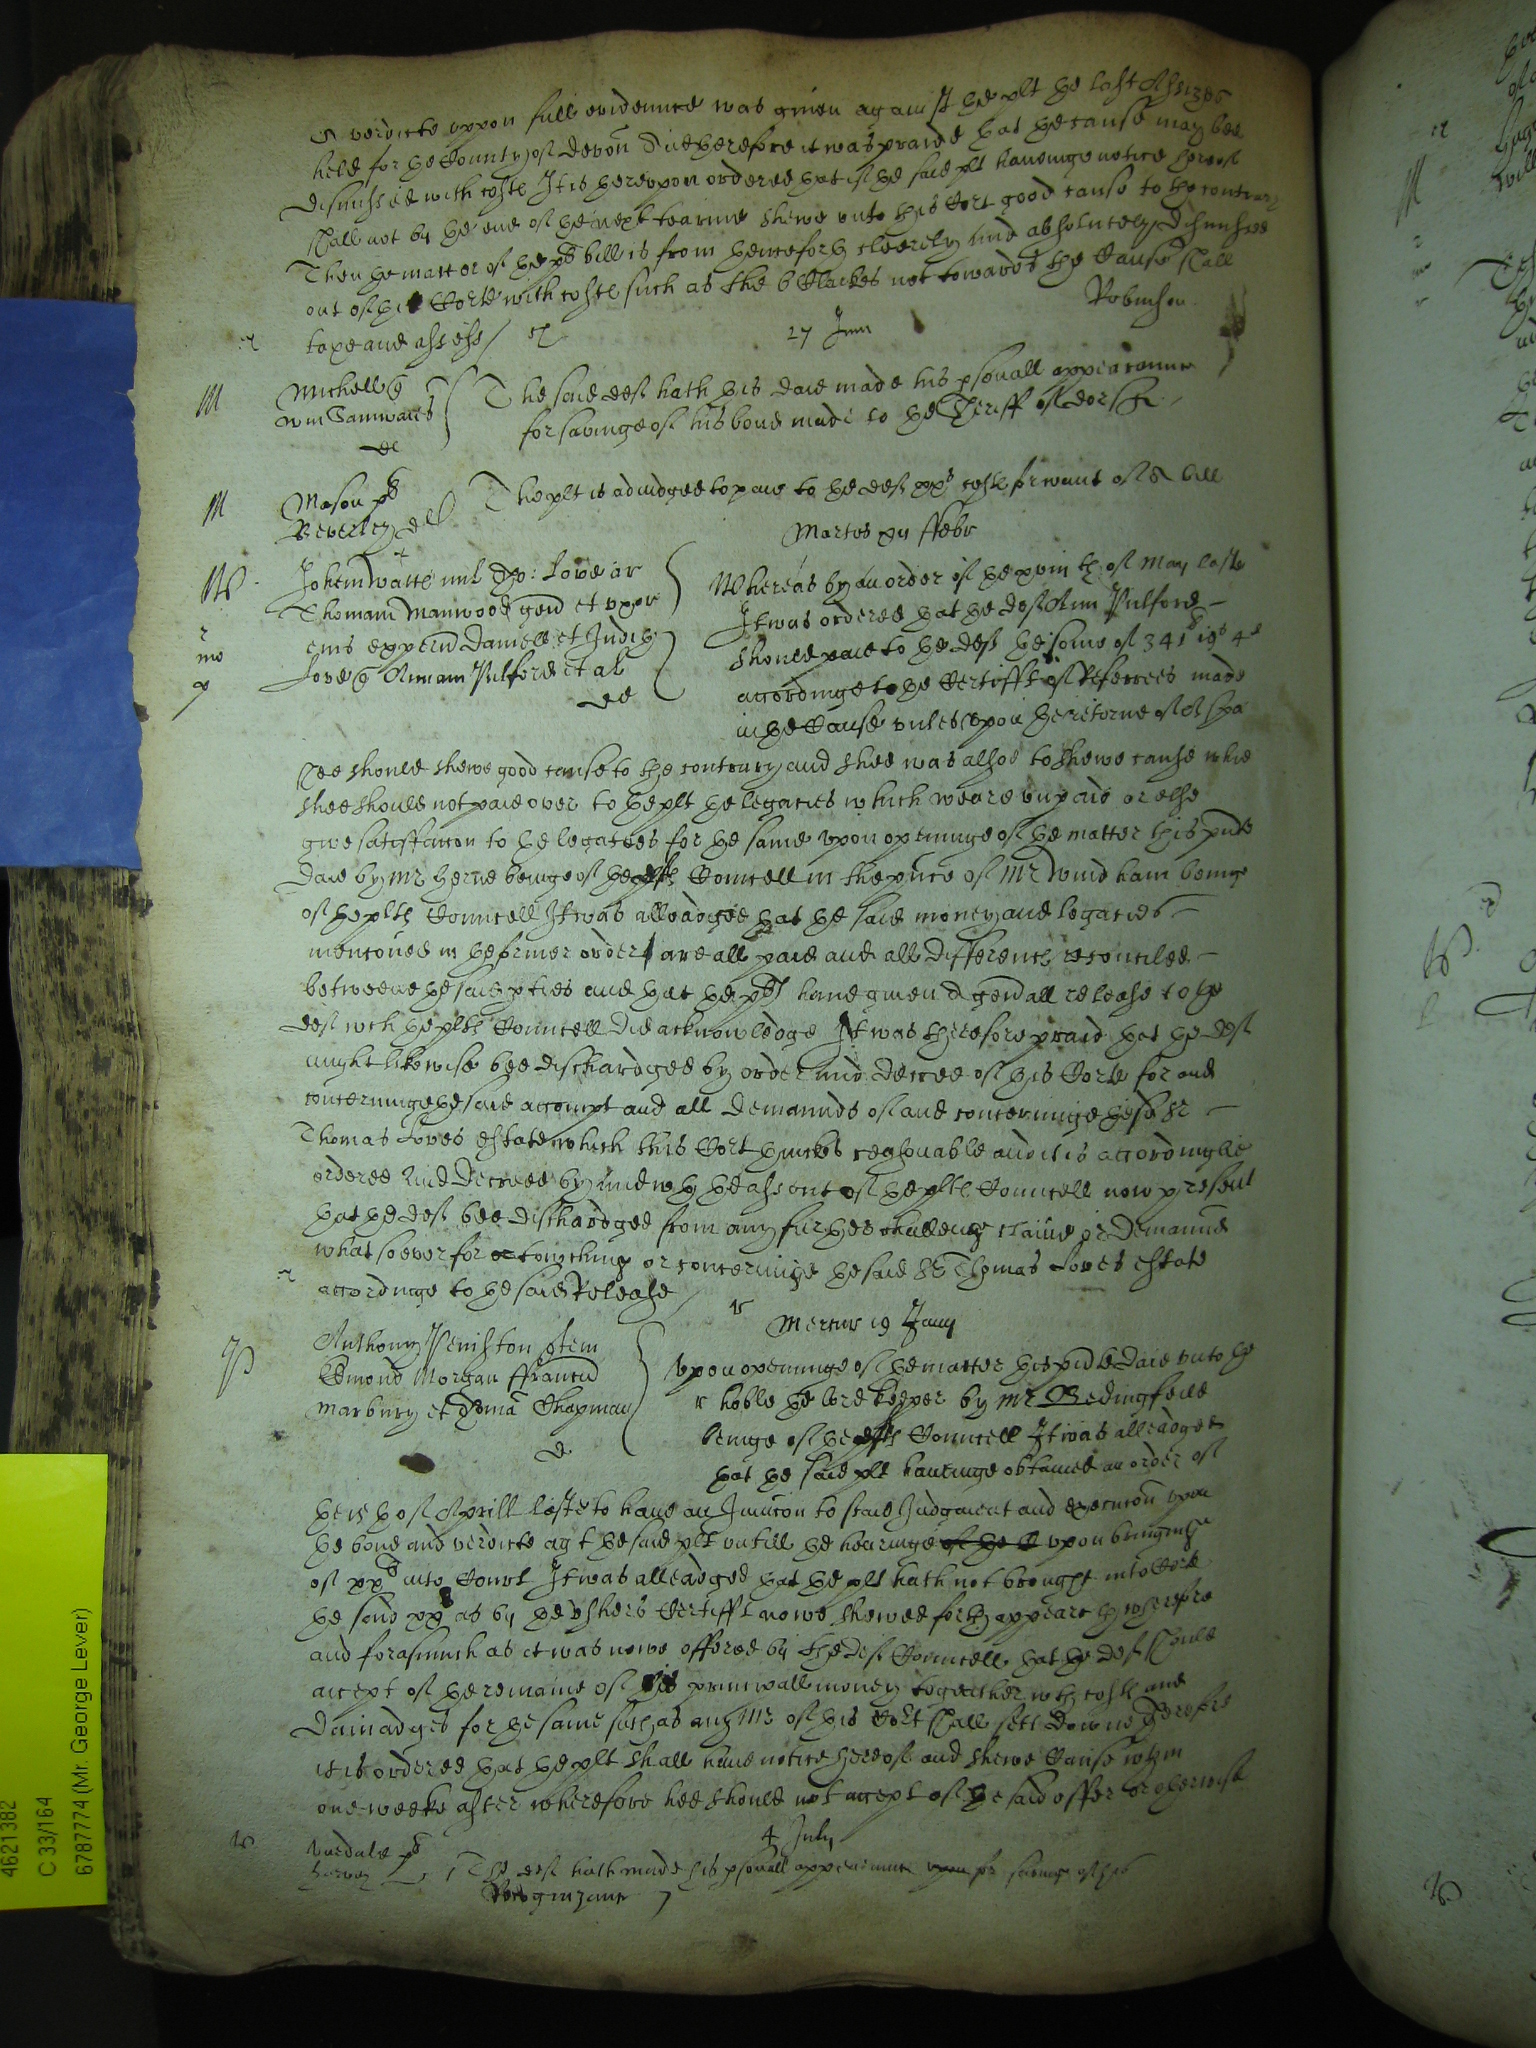 A verdicte uppon full evidennce was given against the plt the last Assizes
held for the County of Devon And therefore it was praied that the cause may bee
dismissed with costs It is hereupon ordered that if the said plt havinge notice hereof
shall not by the end of the next tearme shewe unto this Cort good cause to the contrary
Then the matter of the pts bill is from henceforth cleerely and absolutely dismissed
out of this Corte with costs such as the 6 Clarkes not towards the Cause shall
taxe and assesse
Robinson
27 Junii
M
Michell q
Wm Samwaies
de
The said def hath this daie made his psonall appearannce
for savinge of his bond made to the Sheriff of Dorset
M
Mason pq
Beverley de
The plt is adiudged to paie to the def xxs costs for want of A bill
Martis xii Febr
W
Johem Watts mil Tho: Love ar
Thomam Manwood gen et uxor
eius expertem Daniell et Judith
Love q Annam Pulford et al
de
Whereas by an order of the xviii th of May laste
It was ordered that the def Ann Pulford
should paie to the defts the some of 341l 19s 4d
accordinge to the Certifft of Referrees made
in the Cause unles upon the retorne of A spa
shee should shewe good cause to the contrary and shee was allsoe to shewe cause whie
shee should not paie over to the plt the legacies which weare unpaid or else
give satisffaccon to the legatees for the same upon openinge of the matter this pnte
daie by Mr Herne beinge of the defts Councell in the pnce of Mr Windham beinge
of the plts Councell It was alleadged that the said money and legacies
mentioned in the former order are all paid and all differences reconciled
betweene the said pties and that the pts have given A genall release to the
def wch the plts Councell did acknowledge It was therefore praid that the def
might likewise bee dischardged by order and decree of this Corte for and
concerninge the said accompt and all demannds of and concerninge the sd Sr
Thomas Loves estate which this Cort thinkes reasonable and it is accordinglie
ordered And Decreed by and wth the assent of the plts Councell now present
that the def bee dischardged from any further challenge claime or Demannd
whatsoever for or touchinge or concerninge the said Sr Thomas Loves estate
accordinge to the said Release
Mercur 19 Jany
P
Anthony Peniston
Edmond Morgan Francis
Marbury et Thoma Chapman
de
Upon openinge of the matter this pnte daie unto the
r hoble the lord keeper by Mr Bedingfeild
beinge of the defts Councell It was alleadged
that the said plt havinge obtained an order of
the 15th of Aprill laste to have an Iniuncon to staie Judgment and execucon upon
the bond and verdicte agt the said plt untill the hearinge of the C upon bringinge
of xxl into Court It was alleadged that the plt hath not brought into Corte
the said xxl as by the ushers Certifft nowe shewed forth appeareth wherefore
and forasmuch as it was nowe offered by the defts Councell that the def should
accept of the remaine of his principall money togeather wth costs and
Damadges for the same such as any Mr of this Cort shall sett downe therefore
it is ordered that the plt shall have notice hereof and shewe Cause wthin
one weeke after wherefore hee should not accept of the said offer or otherwise
4 July
Uvedale pq
The def hath made his psonall appearannce upon for savinge of his
Recognizance
4621382
C 33/164
6787774 (Mr. George Lever)